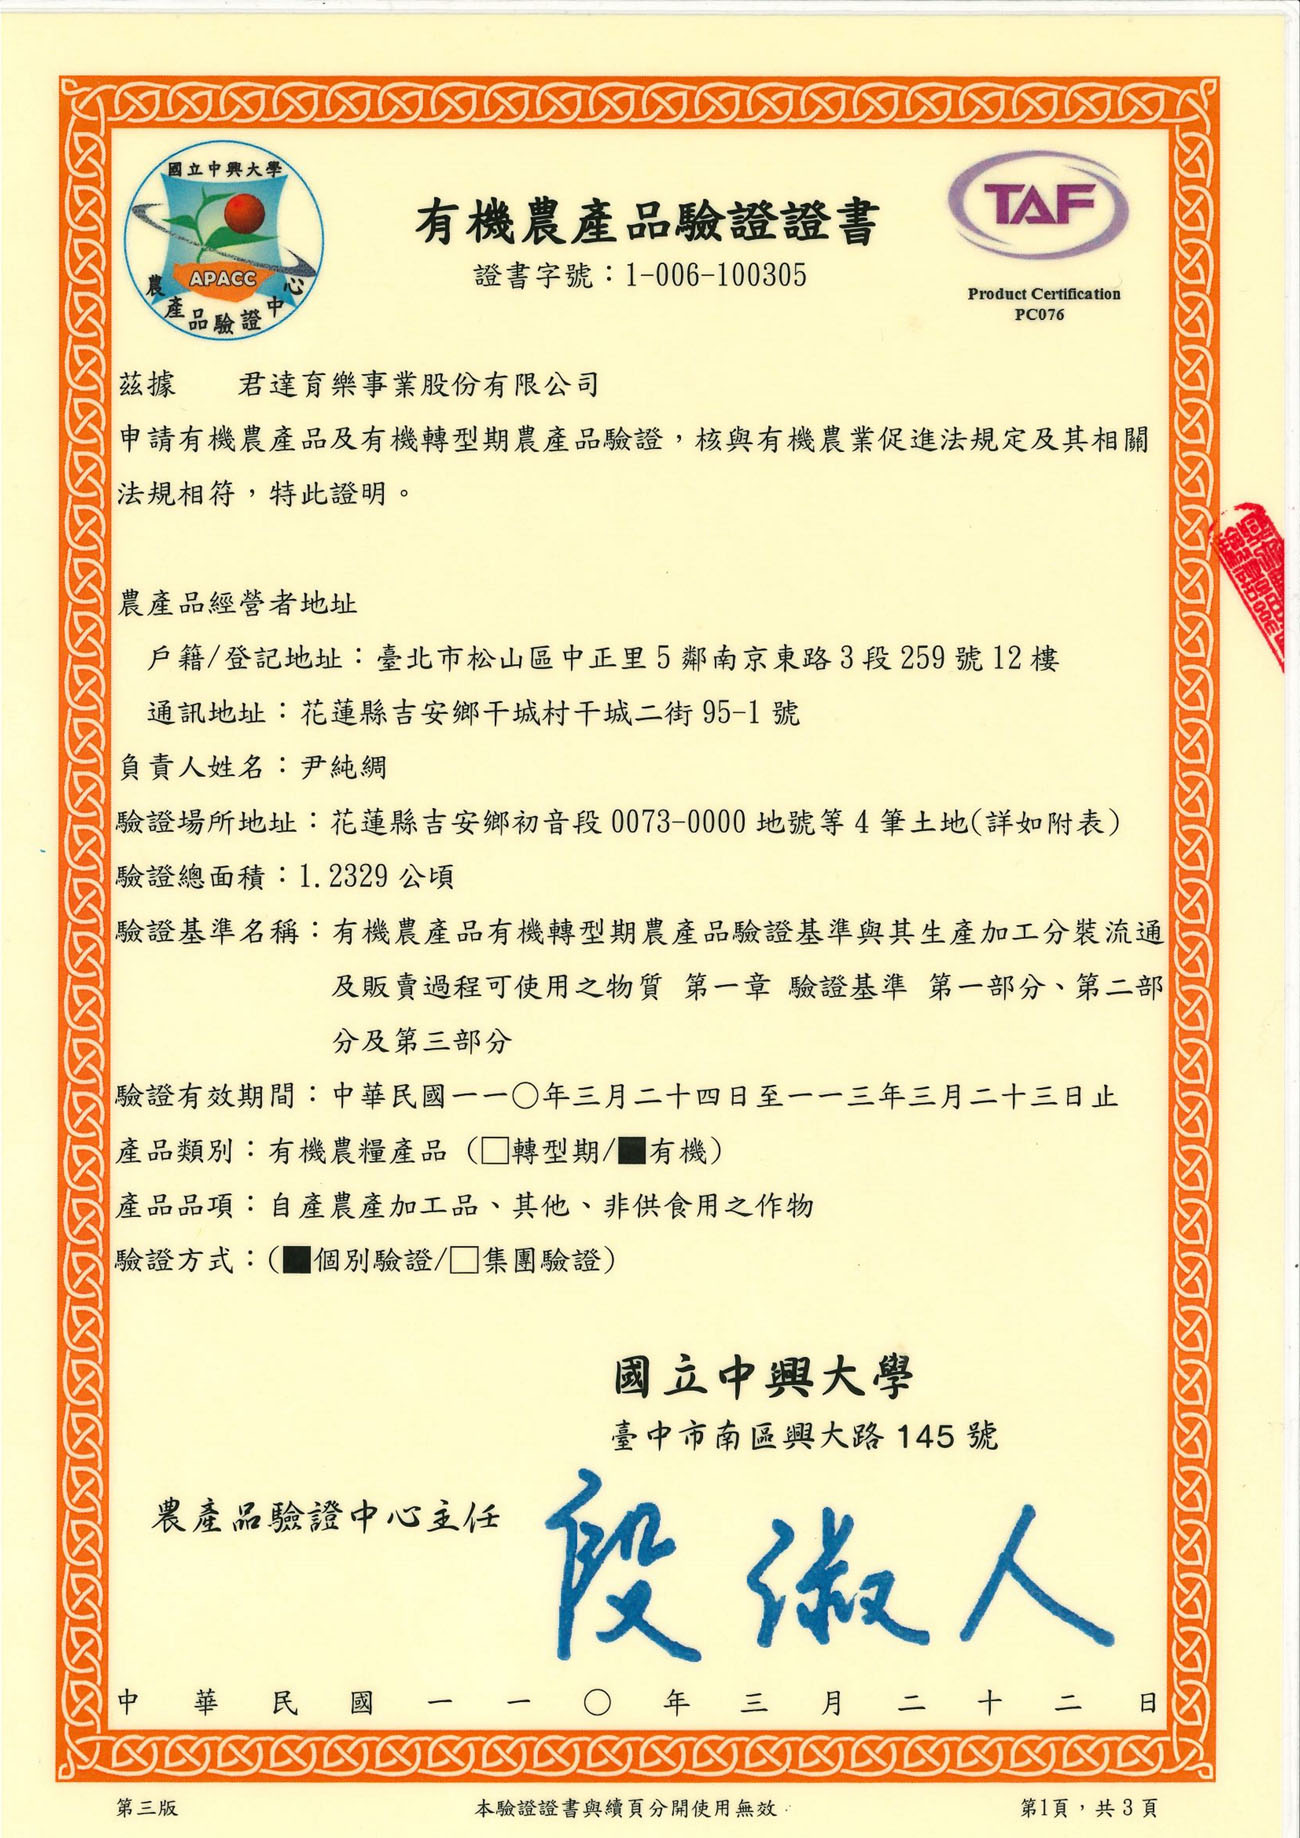 國立中興大學
APACC
農產品驗證中心
TAF
Product Certification
PC076
有機農產品驗證證書
證書字號：1-006-100305
茲據　　君達育樂事業股份有限公司
申請有機農產品及有機轉型期農產品驗證，核與有機農業促進法規定及其相關
法規相符，特此證明。
農產品經營者地址
戶籍/登記地址：臺北市松山區中正里5鄰南京東路3段259號12樓
通訊地址：花蓮縣吉安鄉干城村干城二街95-1號
負責人姓名：尹純綢
驗證場所地址：花蓮縣吉安鄉初音段0073-0000地號等4筆土地(詳如附表)
驗證總面積：1.2329公頃
驗證基準名稱：有機農產品有機轉型期農產品驗證基準與其生產加工分裝流通
及販賣過程可使用之物質 第一章 驗證基準 第一部分、第二部
分及第三部分
驗證有效期間：中華民國一一〇年三月二十四日至一一三年三月二十三日止
產品類別：有機農糧產品（□轉型期/■有機）
產品品項：自產農產加工品、其他、非供食用之作物
驗證方式：(■個別驗證/□集團驗證)
國立中興大學
臺中市南區興大路145號
農產品驗證中心主任 段淑人
中華民國一一〇年三月二十二日
第三版 本驗證證書與續頁分開使用無效 第1頁，共3頁